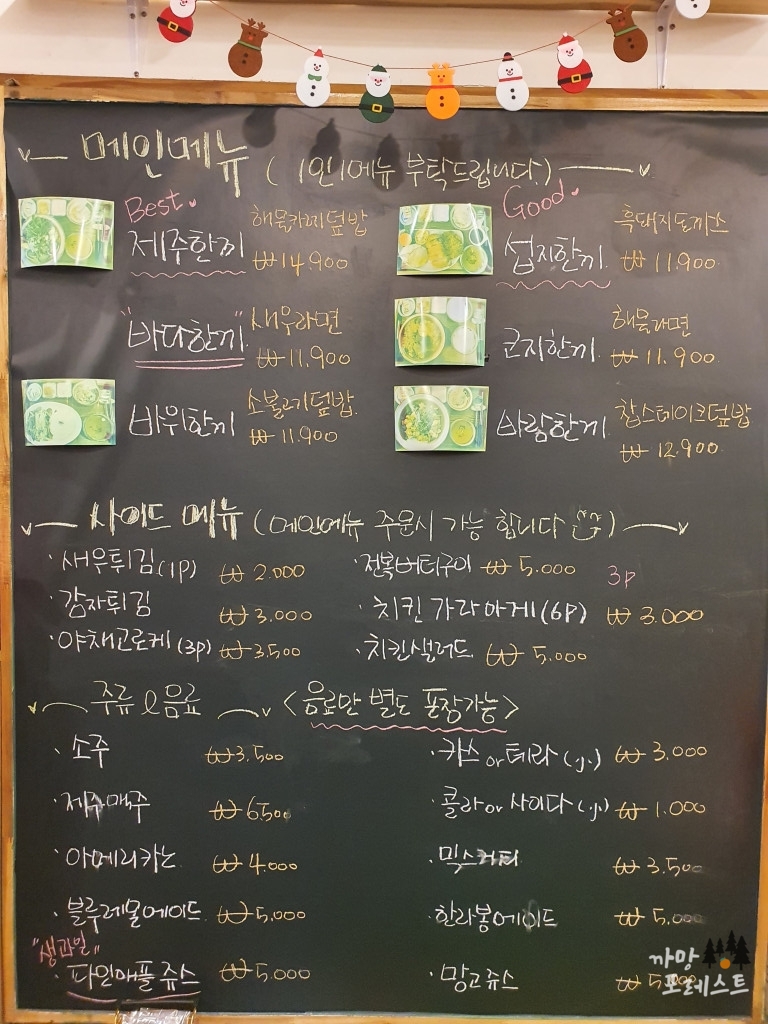 메인메뉴 (1인1메뉴 부탁드립니다.)
Best
제주한끼 해물카레덮밥
₩14.900
Good
섭지한끼 흑돼지돈까스
₩11.900
"바다한끼" 새우라면
₩11.900
해물라면
₩11.900
바위한끼 소불고기덮밥
₩11.900
바람한끼 찹스테이크덮밥
₩12.900
사이드 메뉴 (메인메뉴 주문시 가능 합니다)
·새우튀김(1p) ₩2.000
·전복버터구이 ₩5.000
·감자튀김 ₩3.000
·치킨 가라아게(6p) 3p ₩3.000
·야채고로케(3p) ₩3.500
·치킨샐러드 ₩5.000
주류&음료 <음료만 별도 포장가능>
·소주 ₩3.500
·카스or테라 ₩3.000
·제주맥주 ₩6500
·콜라or사이다 ₩1.000
·아메리카노 ₩4.000
·믹스커피 ₩3.500
·블루레몬에이드 ₩5.000
·한라봉에이드 ₩5.000
"생과일"
·파인애플쥬스 ₩5.000
·망고쥬스
까망
포레스트